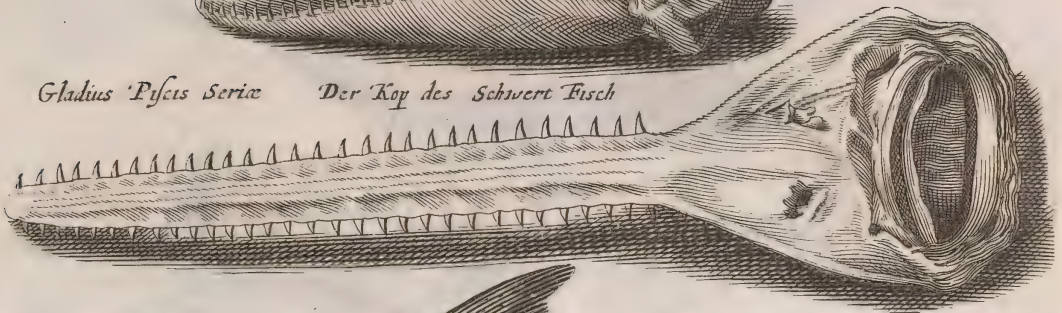 Gladius Piſcis Seriæ Der Kop des Schwert Fisch